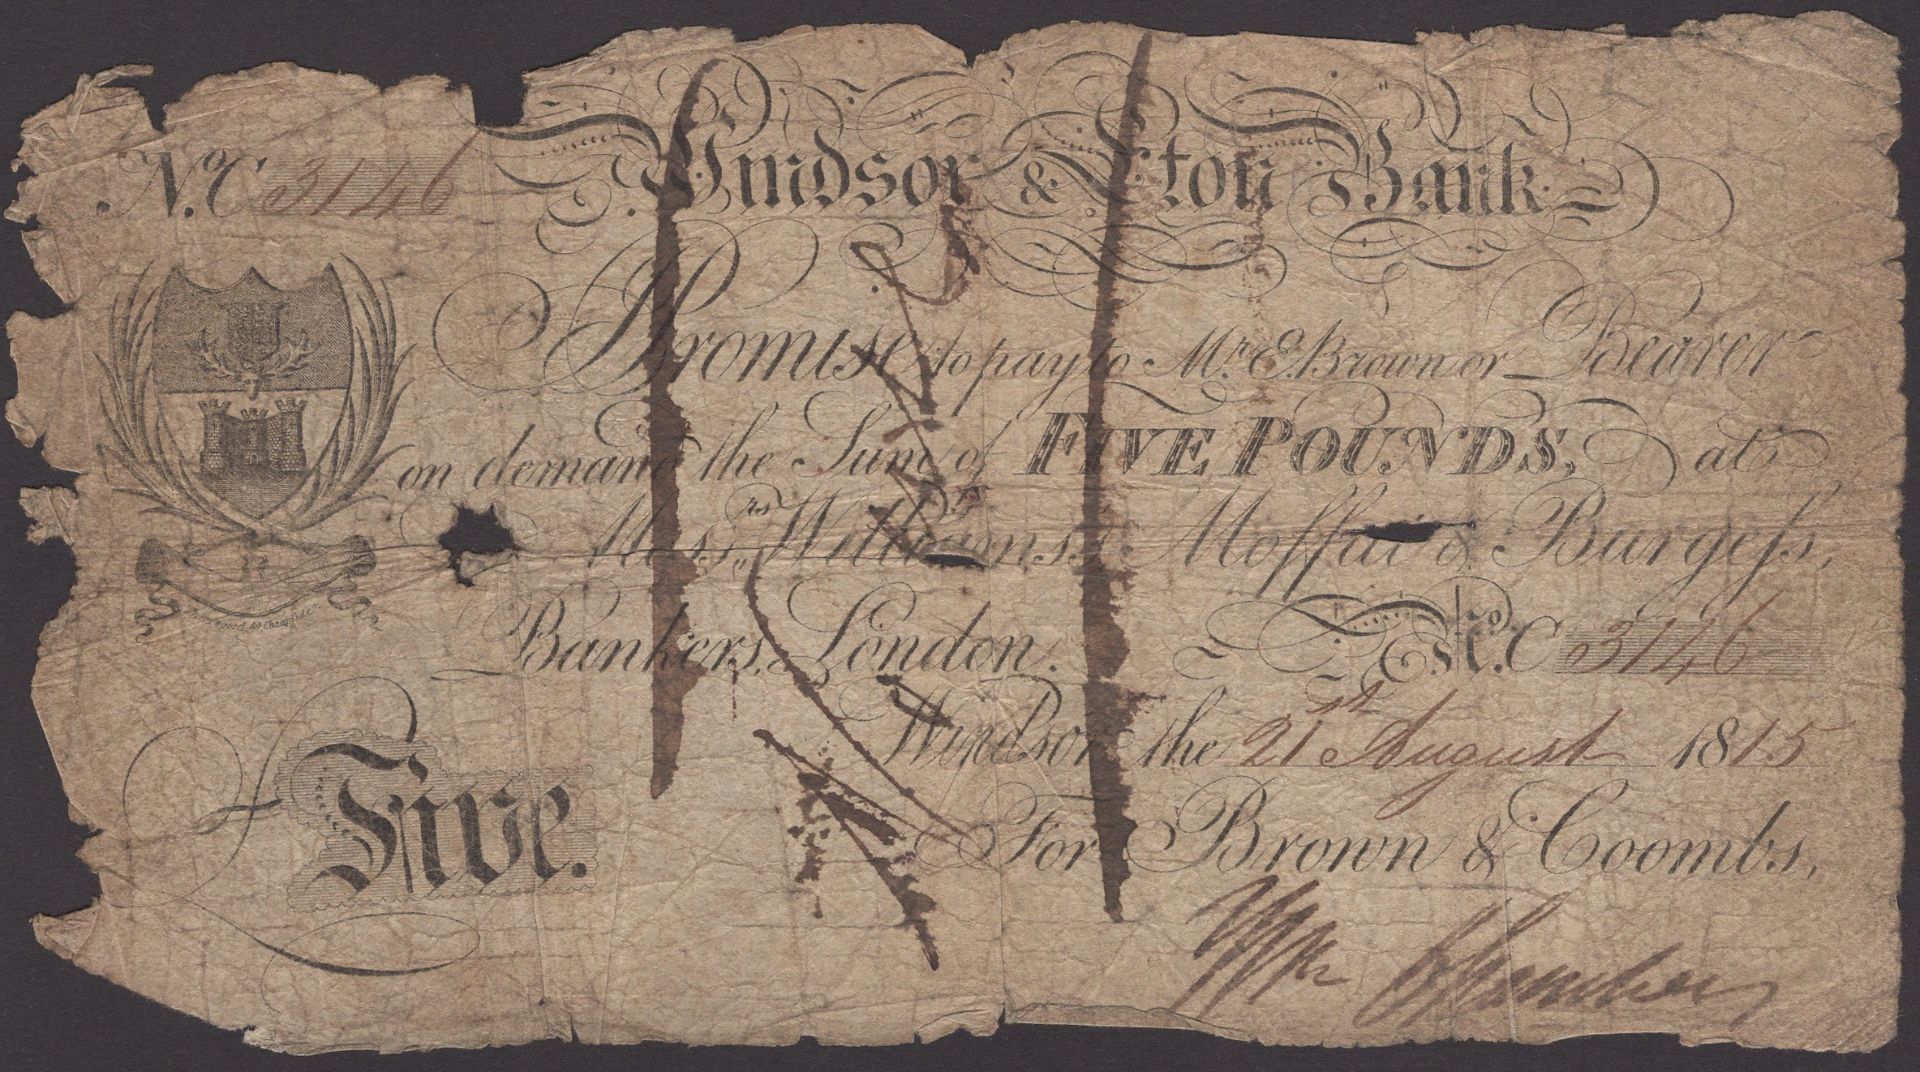 No. C 3146 Windsor & Eton Bank
Promise to pay to Mr. E. Brown or Bearer
on demand the Sum of FIVE POUNDS, at
Messrs. Williams, Moffat & Burgess,
Bankers, London. No. C 3146
Windsor the 21st August 1815
For Brown & Coombs,
Five.